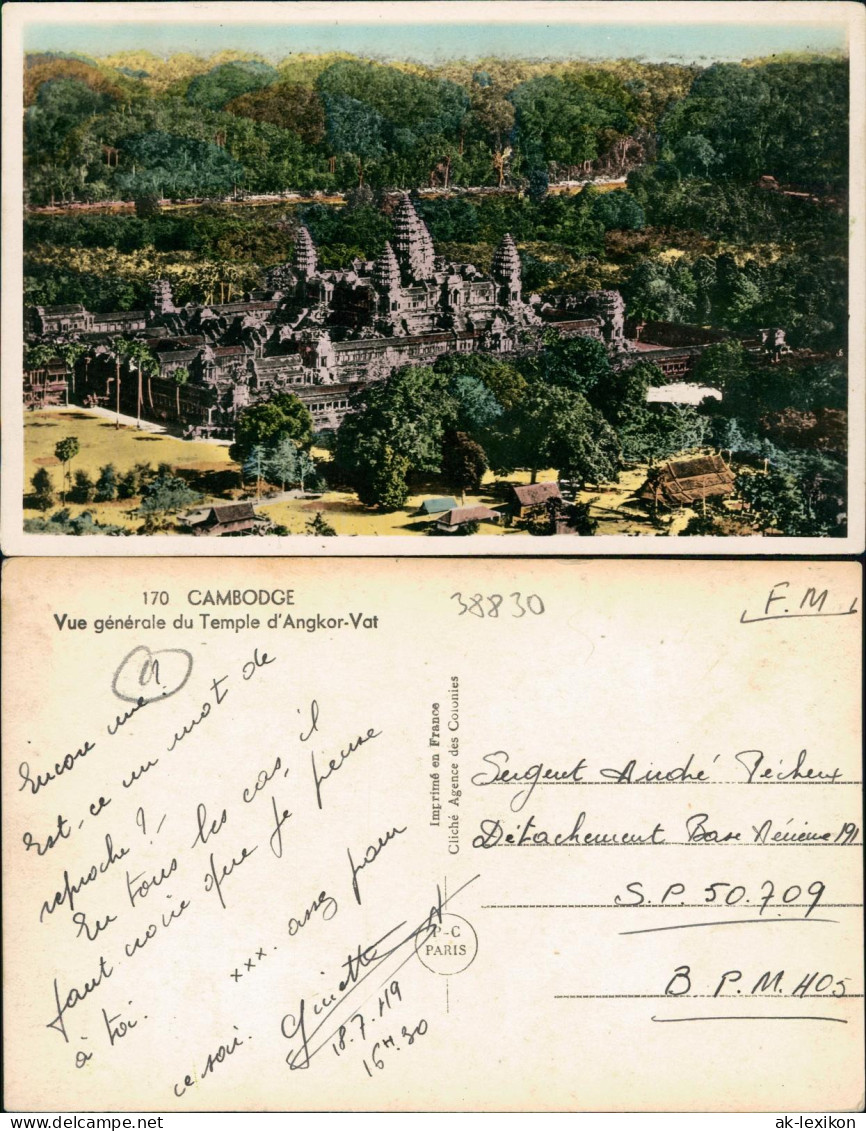 170 CAMBODGE
Vue générale du Temple d'Angkor-Vat
38830
F.M.
Encore une!
Est-ce un mot de
reproche?
En tous les cas, il
faut croire que je pense
à toi. xxx. assez pour
ce soir. Ginette
18.7.49
16H.30
Imprimé en France
Cliché Agence des Colonies
P-C
PARIS
Sergent André Pécheux
Détachement Base Aérienne 191
S.P. 50.709
B.P.M. 405
ak-lexikon